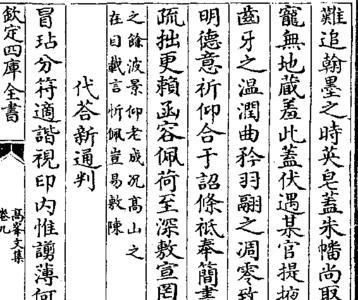 難追翰墨之時英皂蓋朱幡尚取
寵無地蔵羞此蓋伏遇某官提掖
齒牙之温潤曲矜羽翮之凋零致
明德意祈仰合于詔條祗奉簡書
疏拙更賴函容佩荷至深敷宣罔
之餘波景仰老成况高山之
在目載言忻佩豈易敷陳
代答新通判
冒玷分符適諧視印内惟謭薄何
欽定四庫全書
高峯文集
卷九